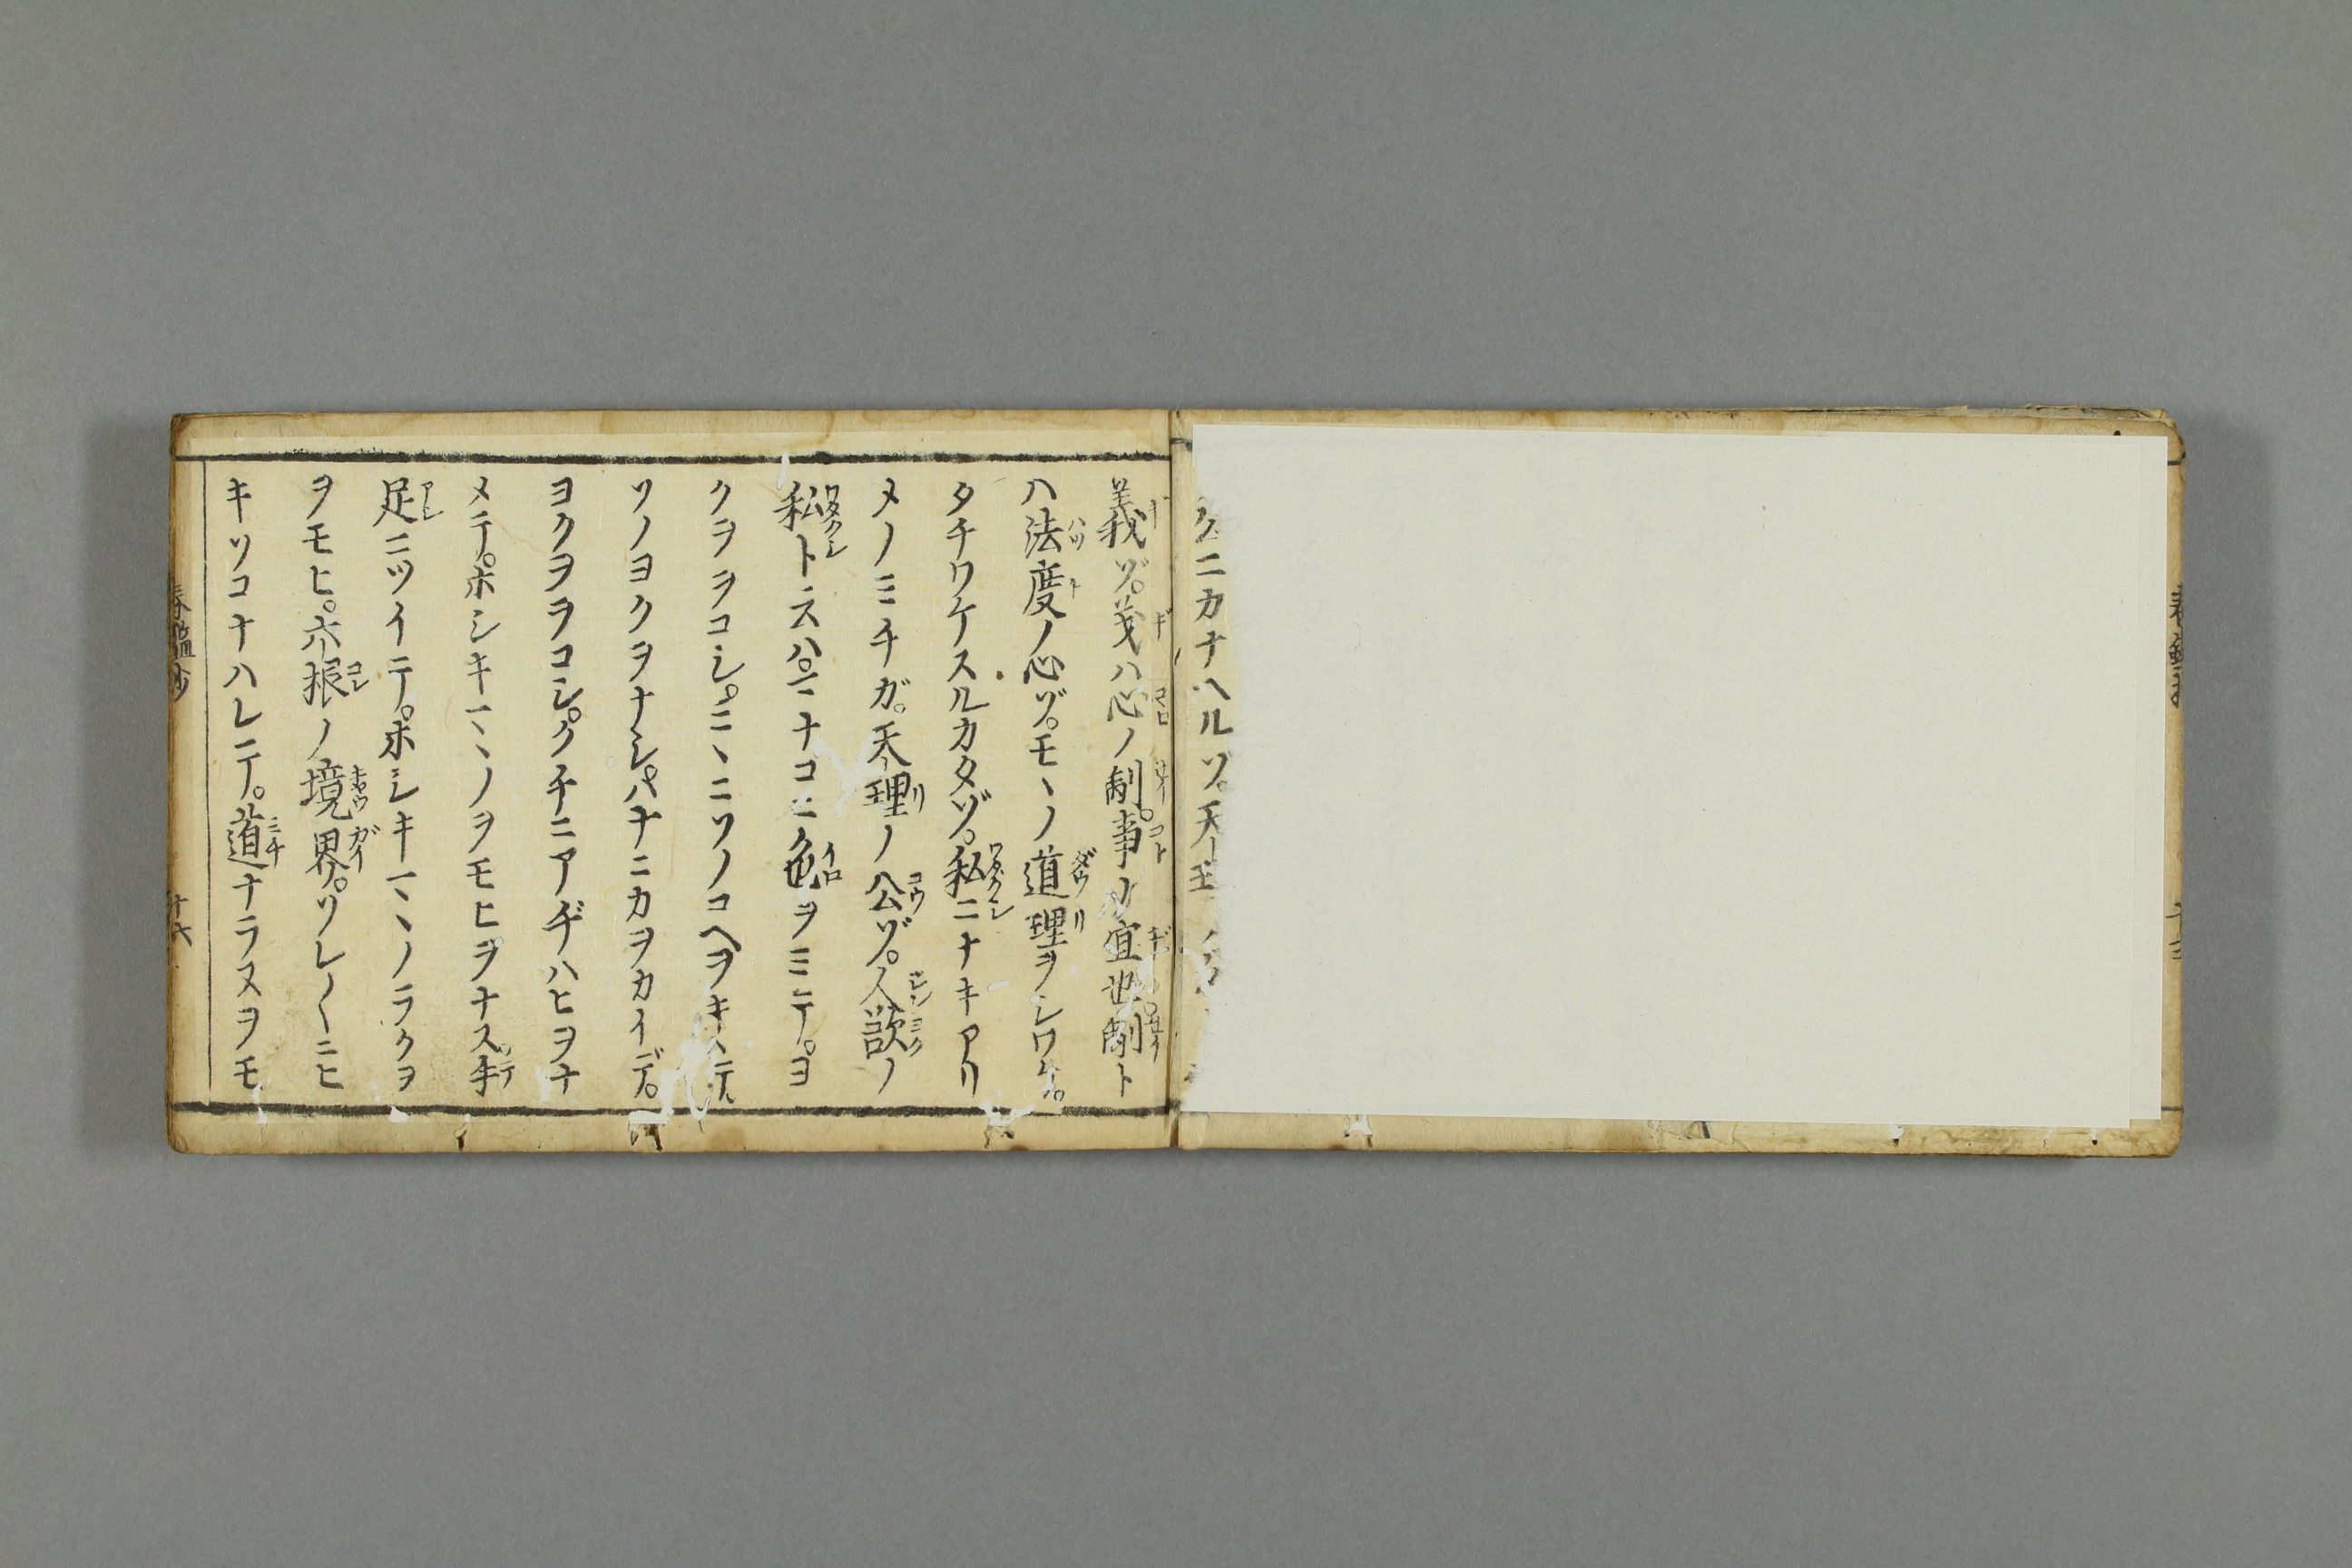 クニカナヘルゾ。天
義ゾ。義ハ心ノ制。事ノ宜也。制ト
ハ法度ノ心ゾ。モヽノ道理ヲシワケ。
タチワケスルカタゾ。私ニナキアリ
メノミチガ。天理ノ公ゾ。人欲ノ
私トニスハ。マナコニ色ヲミテ。ヨ
クヲヲコシ。ミヽニソノコヘヲキヽテ。
ソノヨクヲナシ。ハナニカヲカイデ。
ヨクヲヲコシ。クチニアヂハヒヲナ
メテ。ホシキマヽノヲモヒヲナス。手
足ニツイテ。ホシキマヽノラクヲ
ヲモヒ。六根ノ境界。ソレ〳〵ニヒ
キソコナハレテ。道ナラヌヲモ
春鑑抄
十六